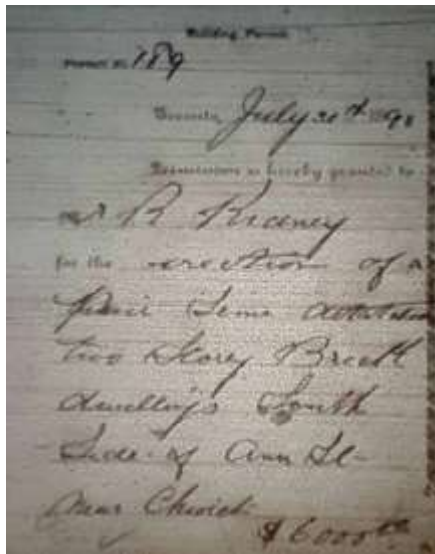 Building Permit
Permit No. 189
Toronto, July 21st 1891
Permission is hereby granted to
Mr R
for the erection of a
pair Semi detatched
two Storey Brick
dwellings South
Side of Ann St
near Church
$6000